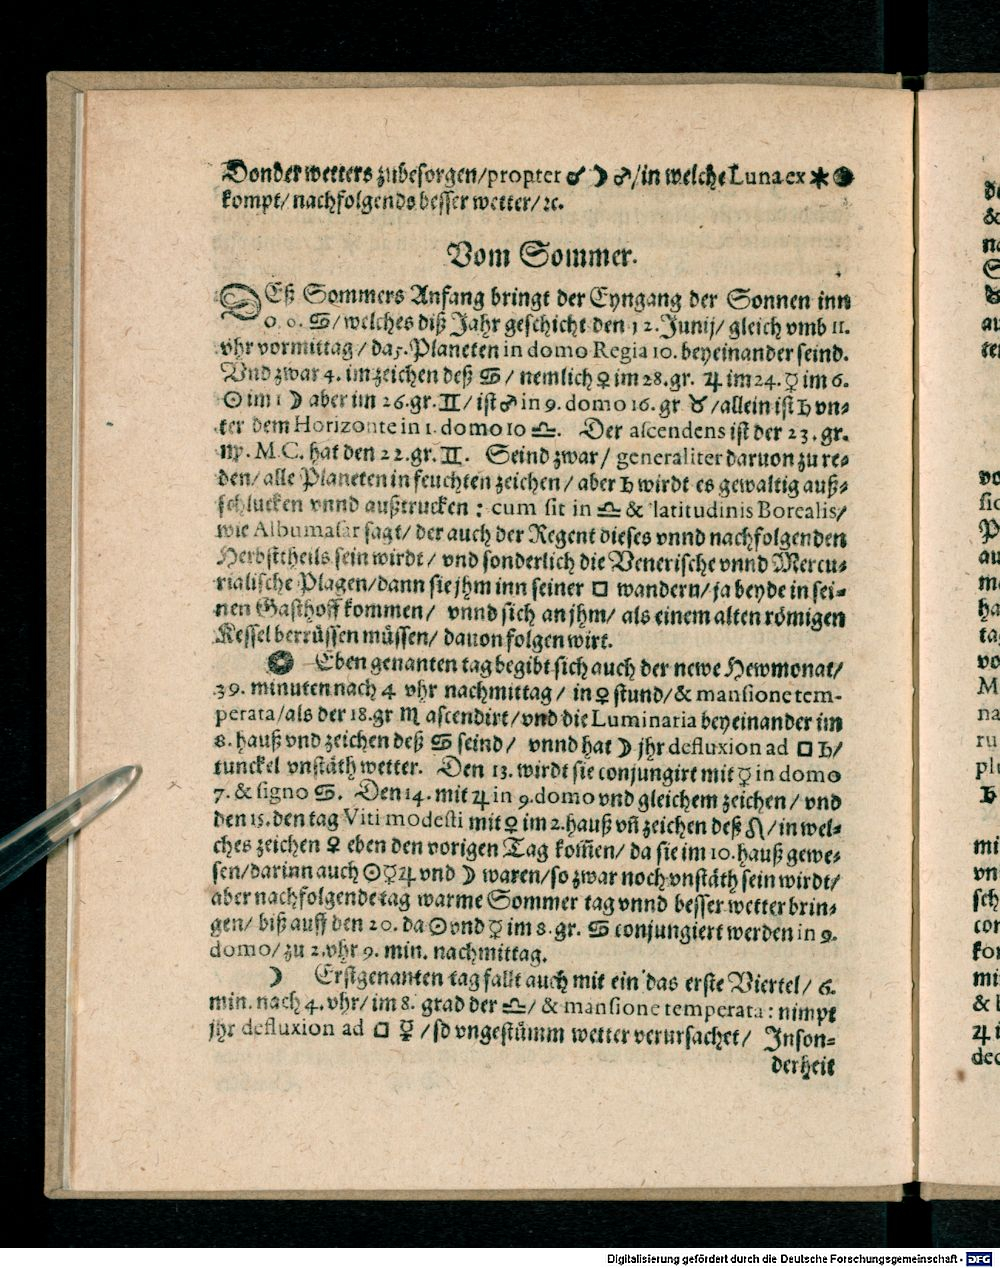 Donderwetters zubesorgen/propter ☌ ☽ ♂/in welche Luna ex ⚹
kompt/ nachfolgends besser wetter/ ꝛc.
Vom Sommer.
DEß Sommers Anfang bringt der Eyngang der Sonnen inn
0. 0. ♋/welches diß Jahr geschicht den 12. Junij/ gleich vmb 11.
vhr vormittag/ da 5. Planeten in domo Regia 10. beyeinander seind.
Vnd zwar 4. im zeichen deß ♋/ nemlich ♀ im 28. gr. ♃ im 24. ☿ im 6.
☉ im 1 ☽ aber im 26. gr. ♊/ ist ♂ in 9. domo 16. gr ♉/allein ist ♄ vn⸗
ter dem Horizonte in 1. domo 10 ♎. Der ascendens ist der 23. gr.
♍. M.C. hat den 22. gr. ♊. Seind zwar/ generaliter daruon zu re⸗
den/ alle Planeten in feuchten zeichen/ aber ♄ wirdt es gewaltig auß⸗
schlucken vnnd außtrucken: cum sit in ♎ & latitudinis Borealis/
wie Albumasar sagt/ der auch der Regent dieses vnnd nachfolgenden
Herbsttheils sein wirdt/ vnd sonderlich die Venerische vnnd Mercu⸗
rialische Plagen/dann sie jhm inn seiner □ wandern/ ja beyde in sei⸗
nen Gasthoff kommen/ vnnd sich an jhm/ als einem alten römigen
Kessel berrüssen müssen/ dauon folgen wirt.
Eben genanten tag begibt sich auch der newe Hewmonat/
39. minuten nach 4 vhr nachmittag/ in ♀ stund/ & mansione tem-
perata/als der 18. gr ♏ ascendirt/vnd die Luminaria beyeinander im
8. hauß vnd zeichen deß ♋ seind/ vnnd hat ☽ jhr defluxion ad □ ♄/
tunckel vnstäth wetter. Den 13. wirdt sie conjungirt mit ☿ in domo
7. & signo ♋. Den 14. mit ♃ in 9. domo vnd gleichem zeichen/ vnd
den 15. den tag Viti modesti mit ♀ im 2. hauß vñ zeichen deß ♌/ in wel⸗
ches zeichen ♀ eben den vorigen Tag kom̃en/ da sie im 10. hauß gewe⸗
sen/darinn auch ☉☿♃ vnd ☽ waren/so zwar noch vnstäth sein wirdt/
aber nachfolgende tag warme Sommer tag vnnd besser wetter brin⸗
gen/ biß auff den 20. da ☉ vnd ☿ im 8. gr. ♋ conjungiert werden in 9.
domo/ zu 2. vhr 9. min. nachmittag.
☽ Erstgenanten tag fallt auch mit ein das erste Viertel/ 6.
min. nach 4. vhr/ im 8. grad der ♎/ & mansione temperata: nimpt
jhr defluxion ad □ ☿/so vngestümm wetter verursachet/ Inson⸗
derheit
Digitalisierung gefördert durch die Deutsche Forschungsgemeinschaft - DFG